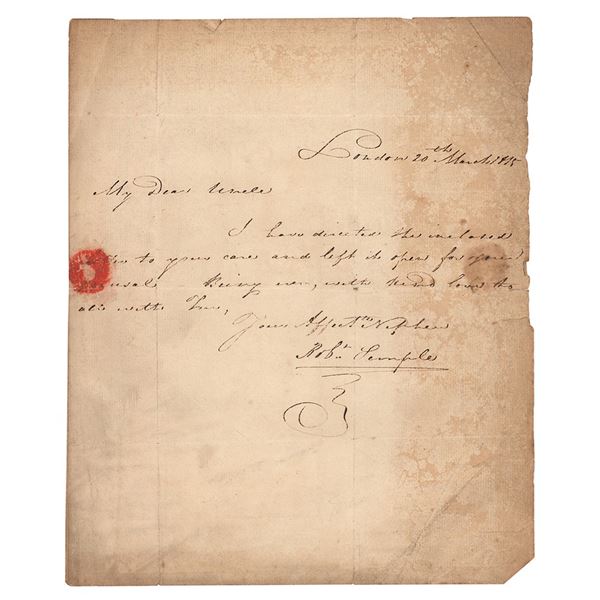 London 20th March 1815
My Dear Uncle
I have directed the inclosed
to your care and left it open for your
perusal Being ever, with kind love to
all with you,
Your Affectte Nephew
Robt Semple